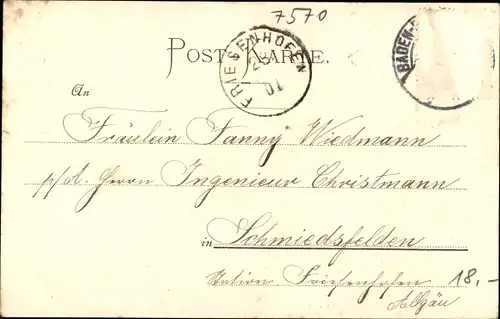 7570
POSTKARTE.
FRIESENHOFEN
BADEN-
An
Fräulein Fanny Wiedmann
p/A. Herrn Ingenieur Christmann
in Schmiedsfelden
Station Friesenhofen 18,-
Allgäu